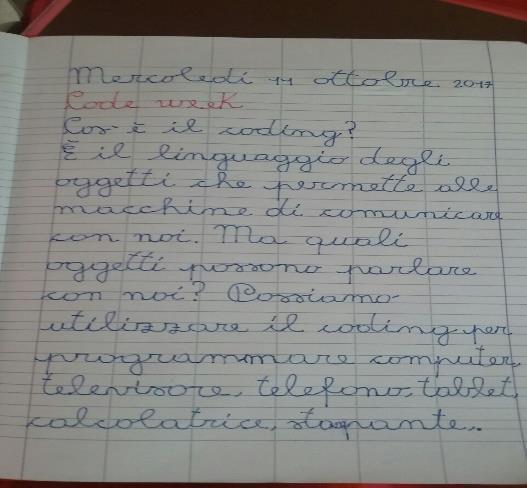 Mercoledì 11 ottobre 2017
Code week
Cos'è il coding?
È il linguaggio degli
oggetti che permette alle
macchine di comunicare
con noi. Ma quali
oggetti possono parlare
con noi? Possiamo
utilizzare il coding per
programmare computer,
televisore, telefono, tablet,
calcolatrice, stampante..